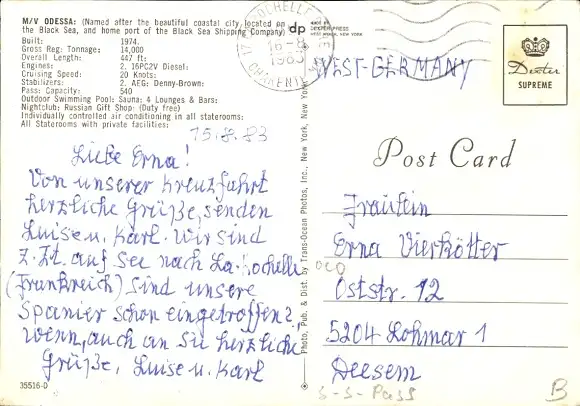 M/V ODESSA: (Named after the beautiful coastal city located on
the Black Sea, and home port of the Black Sea Shipping Company)
Built: 1974.
Gross Reg: Tonnage: 14,000
Overall Length: 447 ft:
Engines: 2. 16PC2V Diesel:
Cruising Speed: 20 Knots:
Stabilizers: 2. AEG: Denny-Brown:
Pass. Capacity: 540
Outdoor Swimming Pool: Sauna: 4 Lounges & Bars:
Nightclub: Russian Gift Shop: (Duty free)
Individually controlled air conditioning in all staterooms:
All Staterooms with private facilities:
15.8.83
Liebe Erna!
Von unserer Kreuzfahrt
herzliche Grüße, senden
Luise u. Karl. Wir sind
z. Zt. auf See nach La-Rochelle
(Frankreich) sind unsere
Spanier schon eingetroffen?
Wenn, auch an sie herzliche
Grüße, Luise u. Karl
35516-D
dp
MADE BY
DEXTER PRESS
WEST NYACK, NEW YORK
17 ROCHELLE
16-8
1983
Photo, Pub. & Dist. by Trans-Ocean Photos, Inc., New York, New York
WEST-GERMANY
Dexter
SUPREME
Post Card
Fräulein
Erna Vierkötter
Oststr. 12
5204 Lohmar 1
Deesem
S-S-Pass
B